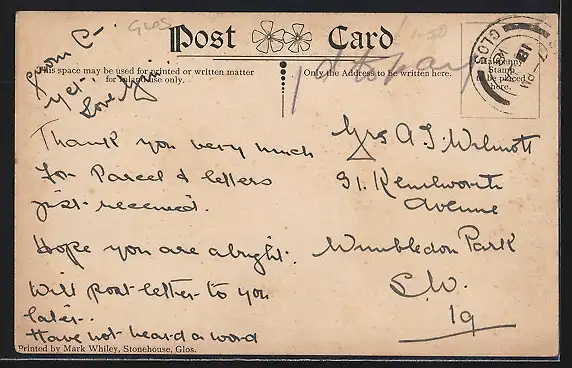 from C-
yet.
Love
Glos
Post Card
This space may be used for printed or written matter
for Inland use only.
Only the Address to be written here.
Halfpenny
Stamp
to be placed
here.
GLOS
18
1d to pay
Thank you very much
for Parcel & letters
just received.
Hope you are alright.
Will post letter to you
later..
Have not heard a word
Mrs A. J. Wilmott
91. Kenilworth
Avenue
Wimbledon Park
S.W.
19
Printed by Mark Whiley, Stonehouse, Glos.